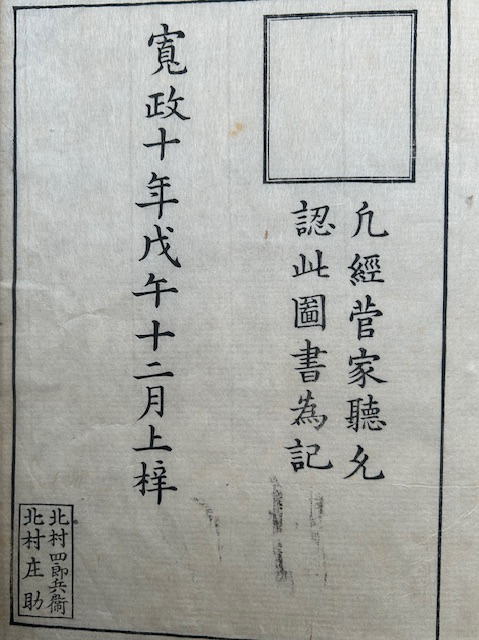 凡經菅家聽允
認此圖書為記
寬政十年戊午十二月上梓
北村四郎兵衞
北村庄助